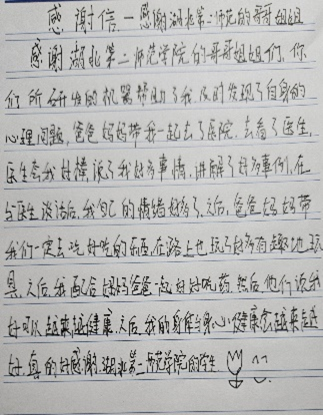 感谢信—感谢湖北第二师范的哥哥姐姐
感谢湖北第二师范学院的哥哥姐姐们,你
们所研发的机器帮助了我及时发现了自身的
心理问题,爸爸妈妈带我一起去了医院,去看了医生,
医生给我好棒,谈了我好多事情,讲解了好多事例,在
与医生谈话后,我自己的情绪好多了,之后,爸爸妈妈带
我们一定去吃好吃的东西,在路上也玩了好多有趣地玩
具,之后,我配合妈妈爸爸一起好好吃药,然后他们说我
好可以越来越健康,之后,我的身体与身心健康会越来越
好,真的好感谢湖北第二师范学院的学生